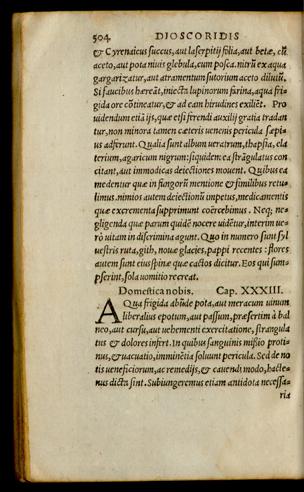 504. DIOSCORIDIS
& Cyrenaicus succus, aut laserpitij folia, aut betæ, cũ
aceto, aut pota niuis glebula, cum posca. nitrũ ex aqua
gargarizatur, aut atramentum sutorium aceto dilutũ.
Si faucibus hæreãt, iniecta lupinorum farina, aqua fri-
gida ore cõtineatur, & ad eam hirudines exiliẽt. Pro
uidendum etiã ijs, quæ etsi ferendi auxilij gratia tradan
tur, non minora tamen cæteris venenis pericula sæpi-
us adferunt. Qualia sunt album ueratrum, thapsia, ela
terium, agaricum nigrum: siquidem ea strãgulatus con
citant, aut immodicas deiectiones mouent. Quibus ea
medentur quæ in fungorũ mentione & similibus retu-
limus. nimios autem deiectionũ impetus, medicamentis
quæ excrementa supprimunt coërcebimus. Neq; ne-
gligenda quæ parum quidẽ nocere uidẽtur, interim ue-
rò uitam in discrimina agunt. Quo in numero sunt syl
uestris ruta, gith, nouæ glacies, pappi recentes: flores
autem sunt eius spinæ quæ cactos dicitur. Eos qui sum-
pserint, sola uomitio recreat.
Domestica nobis. Cap. XXXIII.
AQua frigida abũde pota, aut meracum uinum
liberalius epotum, aut passum, præsertim à bal
neo, aut cursu, aut uehementi exercitatione, strangula
tus & dolores infert. In quibus sanguinis missio proti-
nus, & uacuatio, imminẽtia soluunt pericula. Sed de no
tis ueneficiorum, ac remedijs, & cauendi modo, hacte-
nus dicta sint. Subiungeremus etiam antidota necessa-
ria